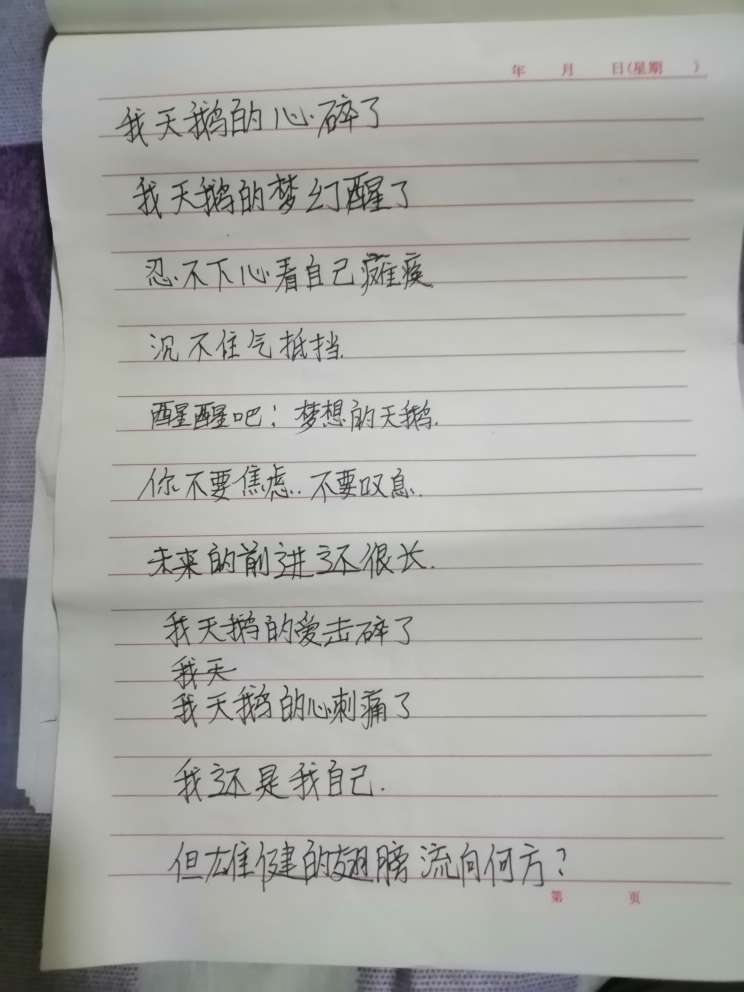 年 月 日(星期 )
我天鹅的心碎了
我天鹅的梦幻醒了
忍不下心看自己瘫痪
沉不住气抵挡.
醒醒吧!梦想的天鹅.
你不要焦虑..不要叹息.
未来的前进还很长.
我天鹅的爱击碎了
我天
我天鹅的心刺痛了
我还是我自己.
但雄健的翅膀流向何方?
第 页